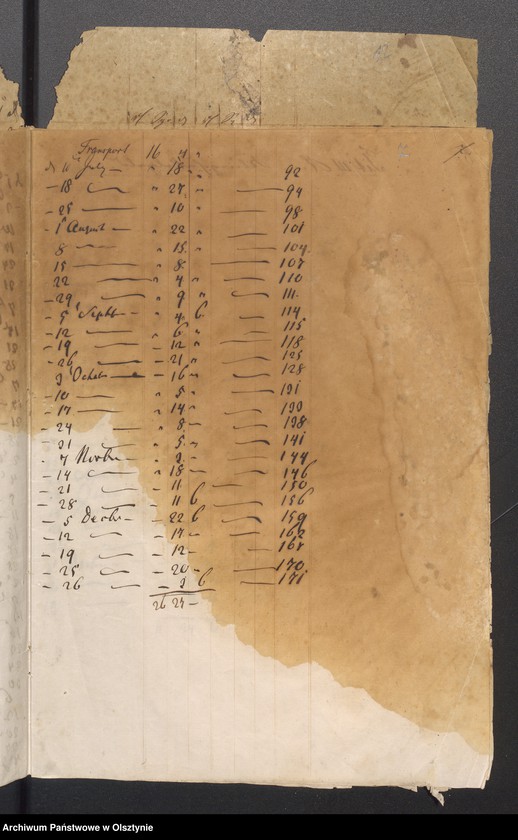 Transport 16 4 "
d 11 July — " 18 " 92
— 18 — " 27 " — 94
— 25 — " 10 " — 98
— 1 August — " 22 " — 101
8 — " 15 " — 104
15 — " 8 " — 107
22 — " 4 " — 110
— 29 — " 9 " — 111
— 5 Septb — " 4 6 — 114
— 12 — " 6 " — 115
— 19 — — 12 " — 118
— 26 — — 21 " — 125
3 Octob — — 16 " — 128
— 10 — " 5 " — 131
— 17 — " 14 " — 133
— 24 — " 8 " — 138
— 31 — " 5 " — 141
. 7 Novbr — " 3 — — 144
— 14 — " 18 — — 146
— 21 — — 11 6 — 150
— 28 — — 11 6 — 156
— 5 Decbr — — 22 6 — 159
— 12 — — 17 — — 162
— 19 — — 12 — — 167
— 25 — — 20 — — 170
— 26 — — 3 6 — 171
26 27 —
Archiwum Państwowe w Olsztynie